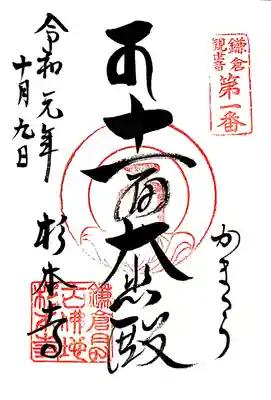 鎌倉
観世音
第一番
かまくら
十一面大悲殿
令和元年
十月九日
杉本寺